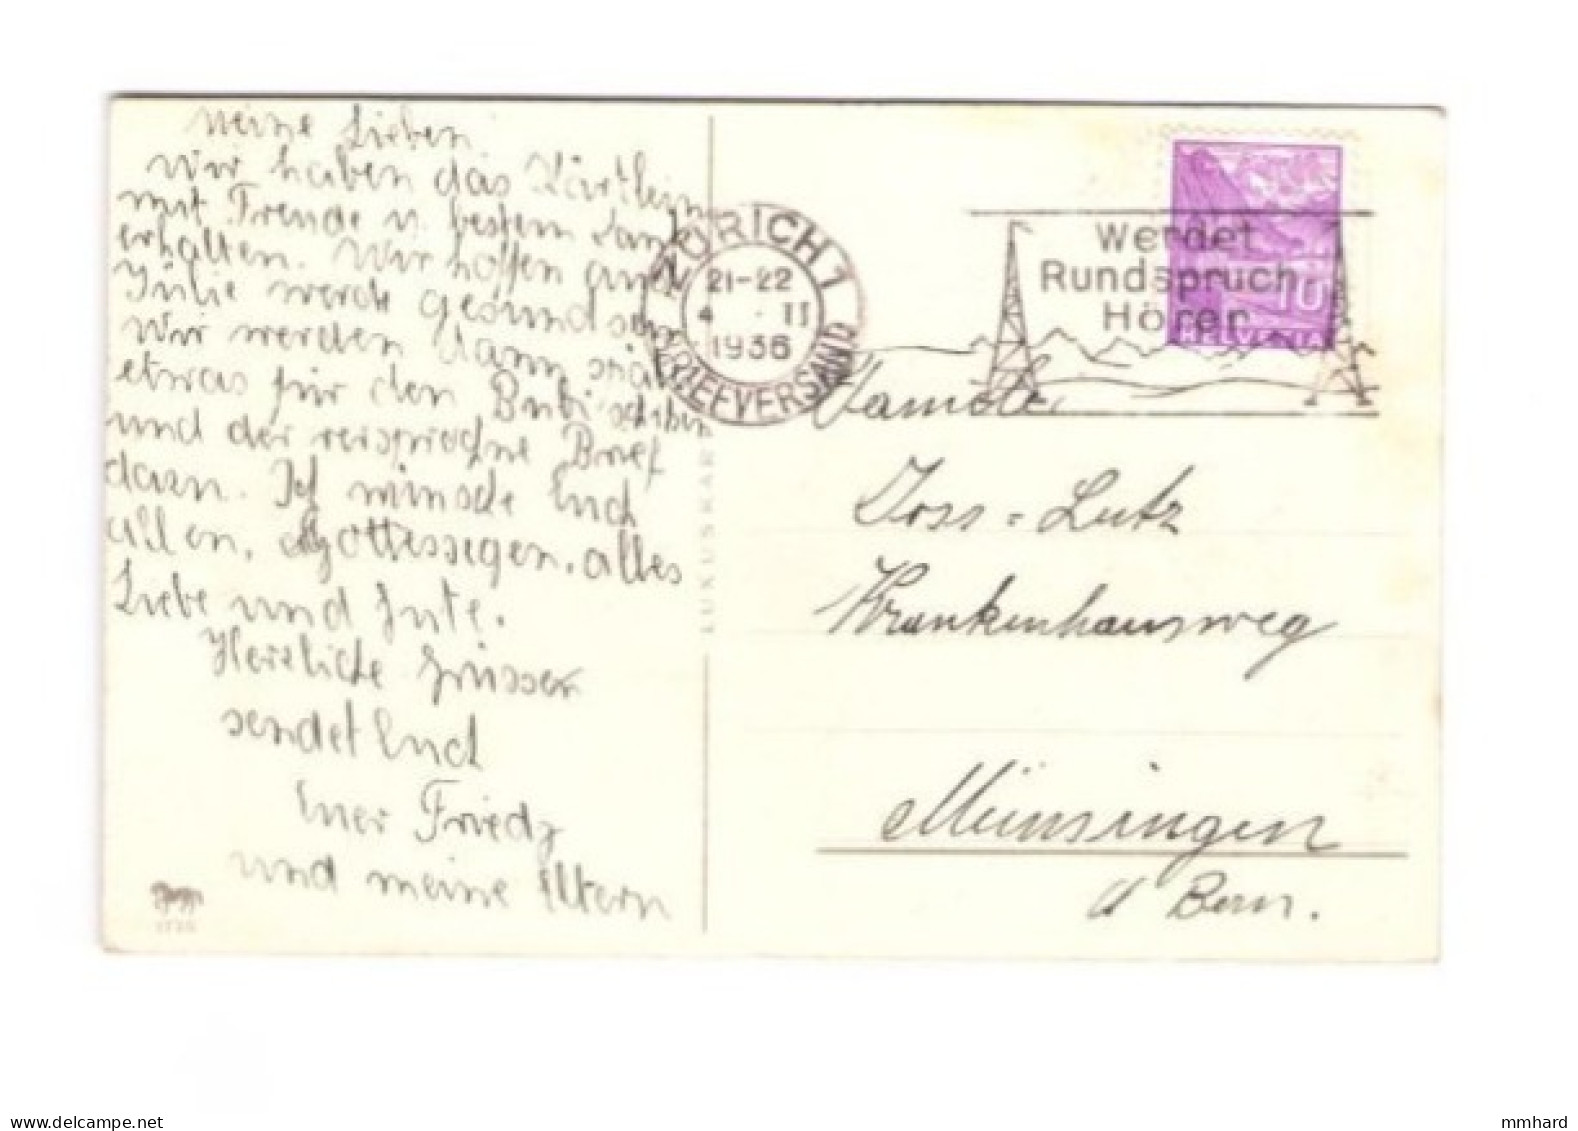 meine Lieben
Wir haben das Kärtlein
mit Freude u. bestem Dank
erhalten. Wir hoffen auch
Julie werde gesund sein
Wir werden dann mal
etwas für den Bubi schicken
und der versprochne Brief
dazu. Ich wünsche Euch
allen, Gottessegen, alles
Liebe und Gute.
Herzliche Grüssen
sendet Euch
Euer Friedy
und meine Eltern
LUKUSKAR
ZÜRICH 1
21-22
4 · II
1936
BRIEFVERSAND
Werdet
Rundspruch
Hörer
10
HELVETIA
Familie
Joss-Lutz
Krankenhausweg
Münsingen
Bern.
delcampe.net
mmhard